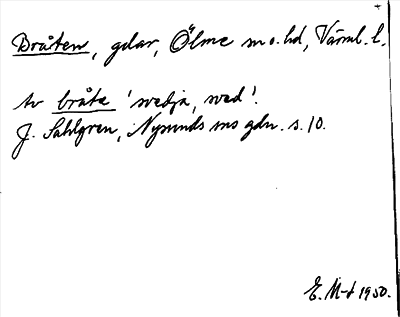 Bråten, gdar, Ölme sn o. hd, Värml. l.
Av bråte 'svedja, sved'.
J. Sahlgren, Nysunds sns gdn. s. 10.
E. M-t 1950.